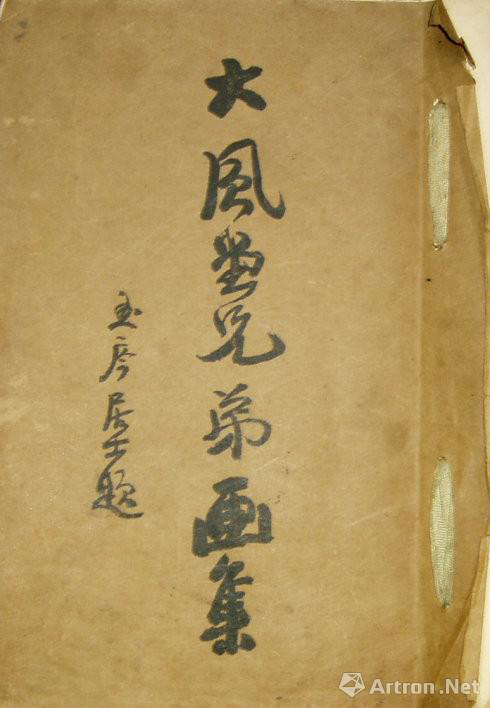 大風堂兄弟画集
玉岑居士題
Artron.Net